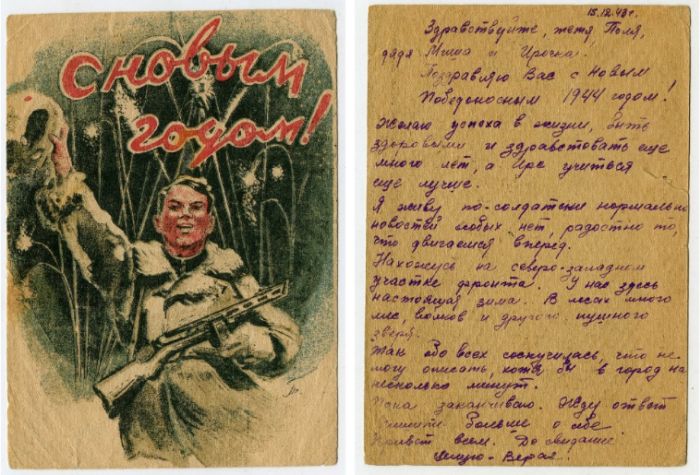 С новым
годом!
15.12.43 г.
Здравствуйте, тетя Поля,
дядя Миша и Ирочка.
Поздравляю Вас с новым
Победоносным 1944 годом!
Желаю успеха в жизни, быть
здоровыми и здравствовать еще
много лет, а Ире учиться
еще лучше.
Я живу по-солдатски нормально
новостей особых нет, радостно то,
что двигаемся вперед.
Нахожусь на северо-западном
участке фронта. У нас здесь
настоящая зима. В лесах много
лис, волков и другого пушного
зверя.
Так во всех соскучилась, что не
могу описать, хотя бы в город на
несколько минут.
Пока заканчиваю. Жду ответ
Пишите больше о себе
Привет всем. До свидания.
Целую - Верая.